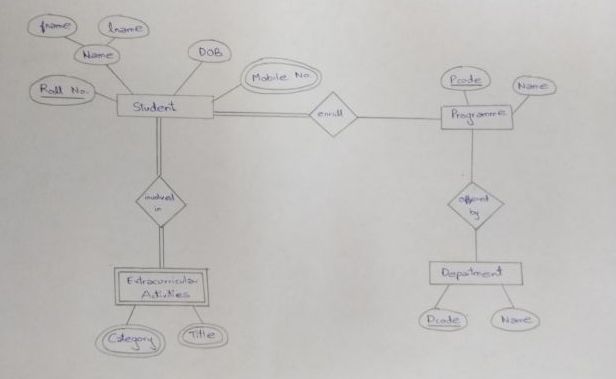 fname
lname
Name
DOB
Mobile No.
Roll No.
Student
enroll
Pcode
Name
Programme
involved
in
offered
by
Extracurricular
Activities
Department
Category
Title
Dcode
Name